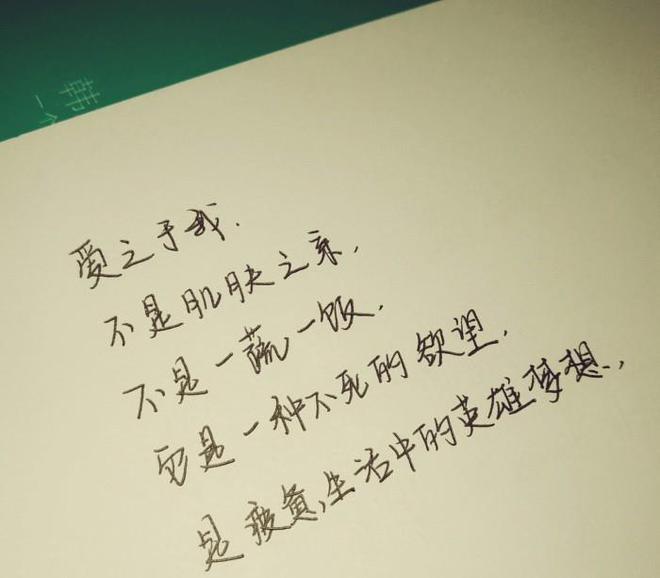 韩
一个
爱之于我.
不是肌肤之亲,
不是一蔬一饭.
它是一种不死的欲望.
是疲惫生活中的英雄梦想.